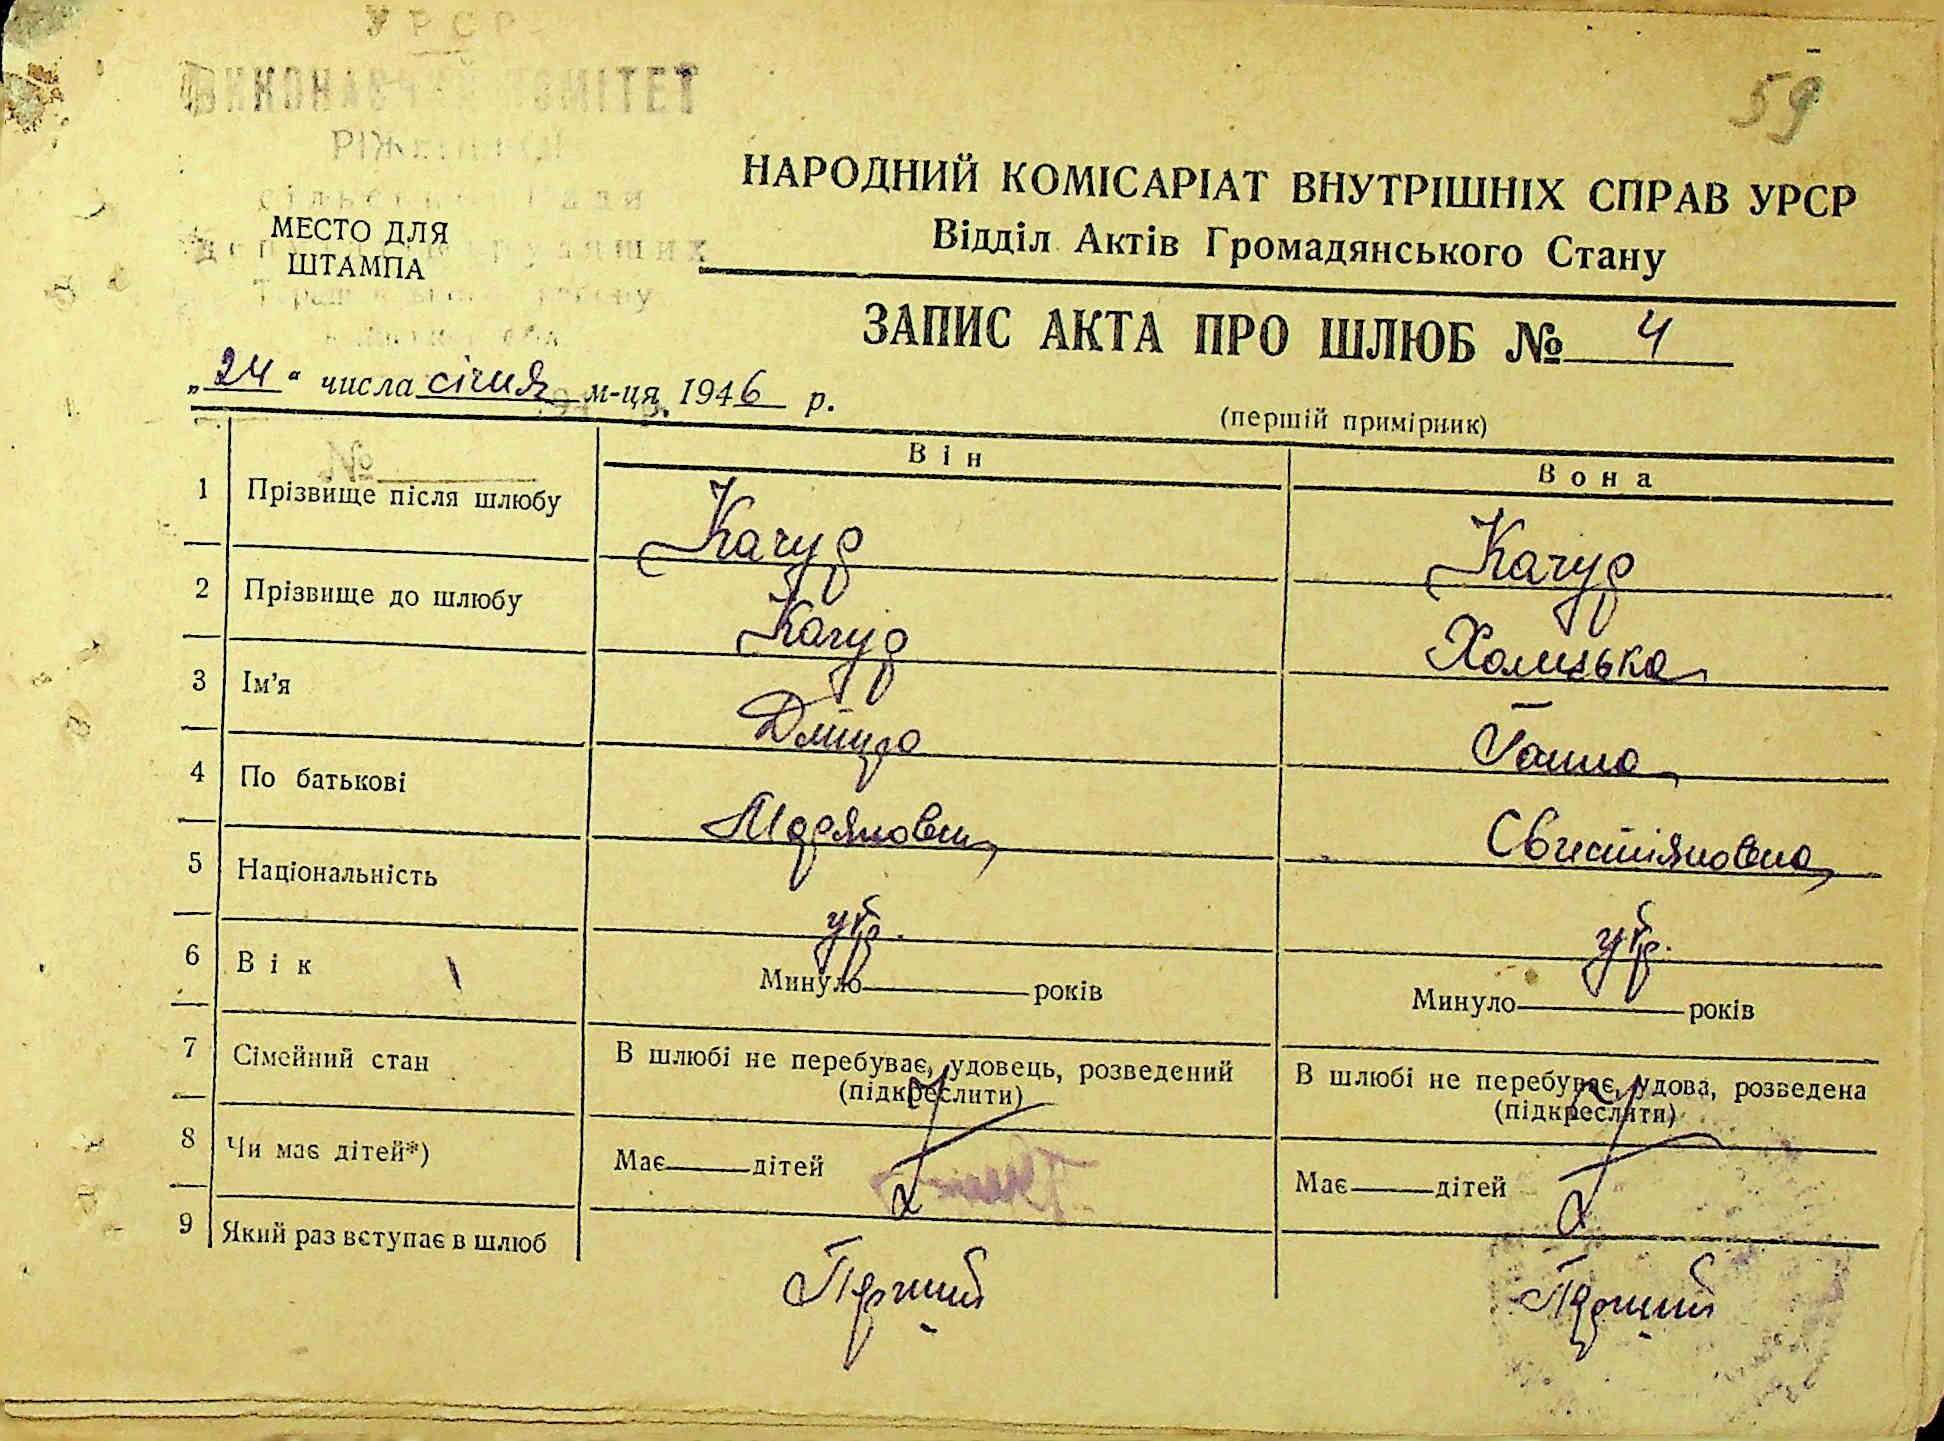 УРСР
ВИКОНАВЧИЙ КОМІТЕТ
59
НАРОДНИЙ КОМІСАРІАТ ВНУТРІШНІХ СПРАВ УРСР
Відділ Актів Громадянського Стану
МЕСТО ДЛЯ
ШТАМПА
ЗАПИС АКТА ПРО ШЛЮБ № 4
„24“ числа січня м-ця 1946 р.
(першій примірник)
Він Вона
1 Прізвище після шлюбу Качур Качур
2 Прізвище до шлюбу Качур
3 Ім'я Дмитро Ганна
4 По батькові
5 Національність укр. укр.
6 Вік Минуло років Минуло років
7 Сімейний стан В шлюбі не перебуває, удовець, розведений (підкреслити) В шлюбі не перебуває, удова, розведена (підкреслити)
8 Чи має дітей*) Має дітей Має дітей
9 Який раз вступає в шлюб Перший Перший